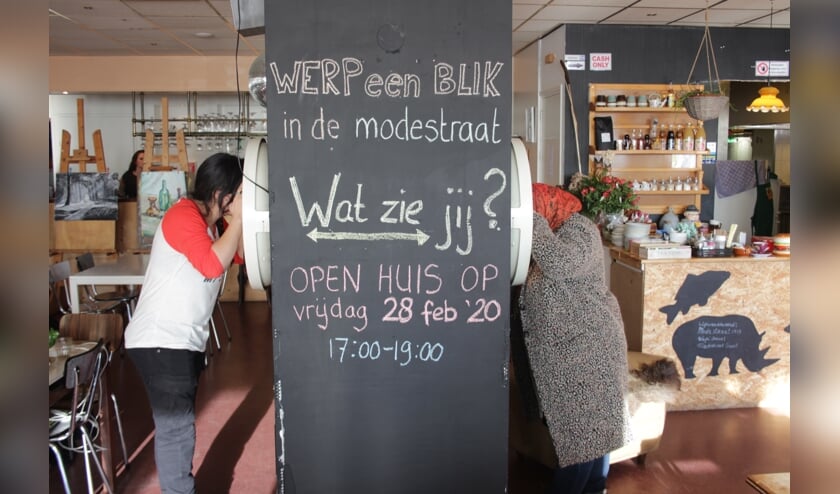 WERP een BLIK
in de modestraat
Wat zie jij?
OPEN HUIS OP
vrijdag 28 feb '20
17:00-19:00
CASH
ONLY